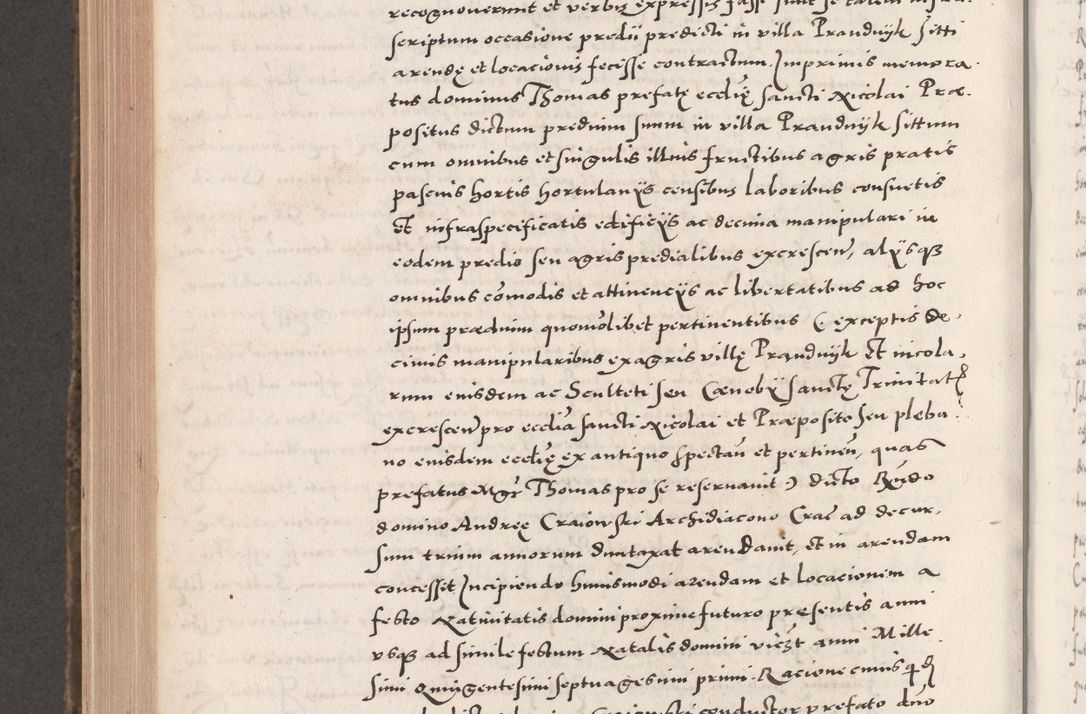 recognoverunt et verbis expressis fassi sunt se talem infra
scriptum occasione predii predicti in villa Prandnÿk sitti
arendę et locacionis fecisse contractum. Imprimis memora
tus dominus Thomas prefatę ecclię sancti Nicolai Præ-
positus dictum predium suum in villa Prandnÿk sittum
cum omnibus et singulis illius fructibus agris pratis
pascuis hortis hortulanÿs censibus laboribus consuetis
et infraspecificatis edificÿs ac decima manipulari in
eodem predio seu agris predialibus excrescen, alÿsqȝ
omnibus comodis et attinencÿs ac libertatibus ad hoc
ipsum prædium quomolibet pertinentibus (exceptis de-
cimis manipularibus ex agris villę Prandnÿk et incola-
rum eiusdem ac Sculteti seu Cœnobÿ Sanctę Trinitat
excrescen pro ecclia sancti Nicolai et Præposito seu pleba
no eiusdem ecclię ex antiquo spectan et pertinen, quas
prefatus Mgr Thomas pro se reservavit) dicto Rndo
domino Andreę Craiowski Archidiacono Crac ad decur-
sum trium annorum duntaxat arendavit, et in arendam
concessit Incipiendo huiusmodi arendam et locacionem a
festo Nativitatis domini proxime futuro presentis anni
vsqȝ ad simile festum Natalis domini anni Mille
simi Quingentesimi septuagesimi primi. Racione cuius
Craiowski conductor prefato dno